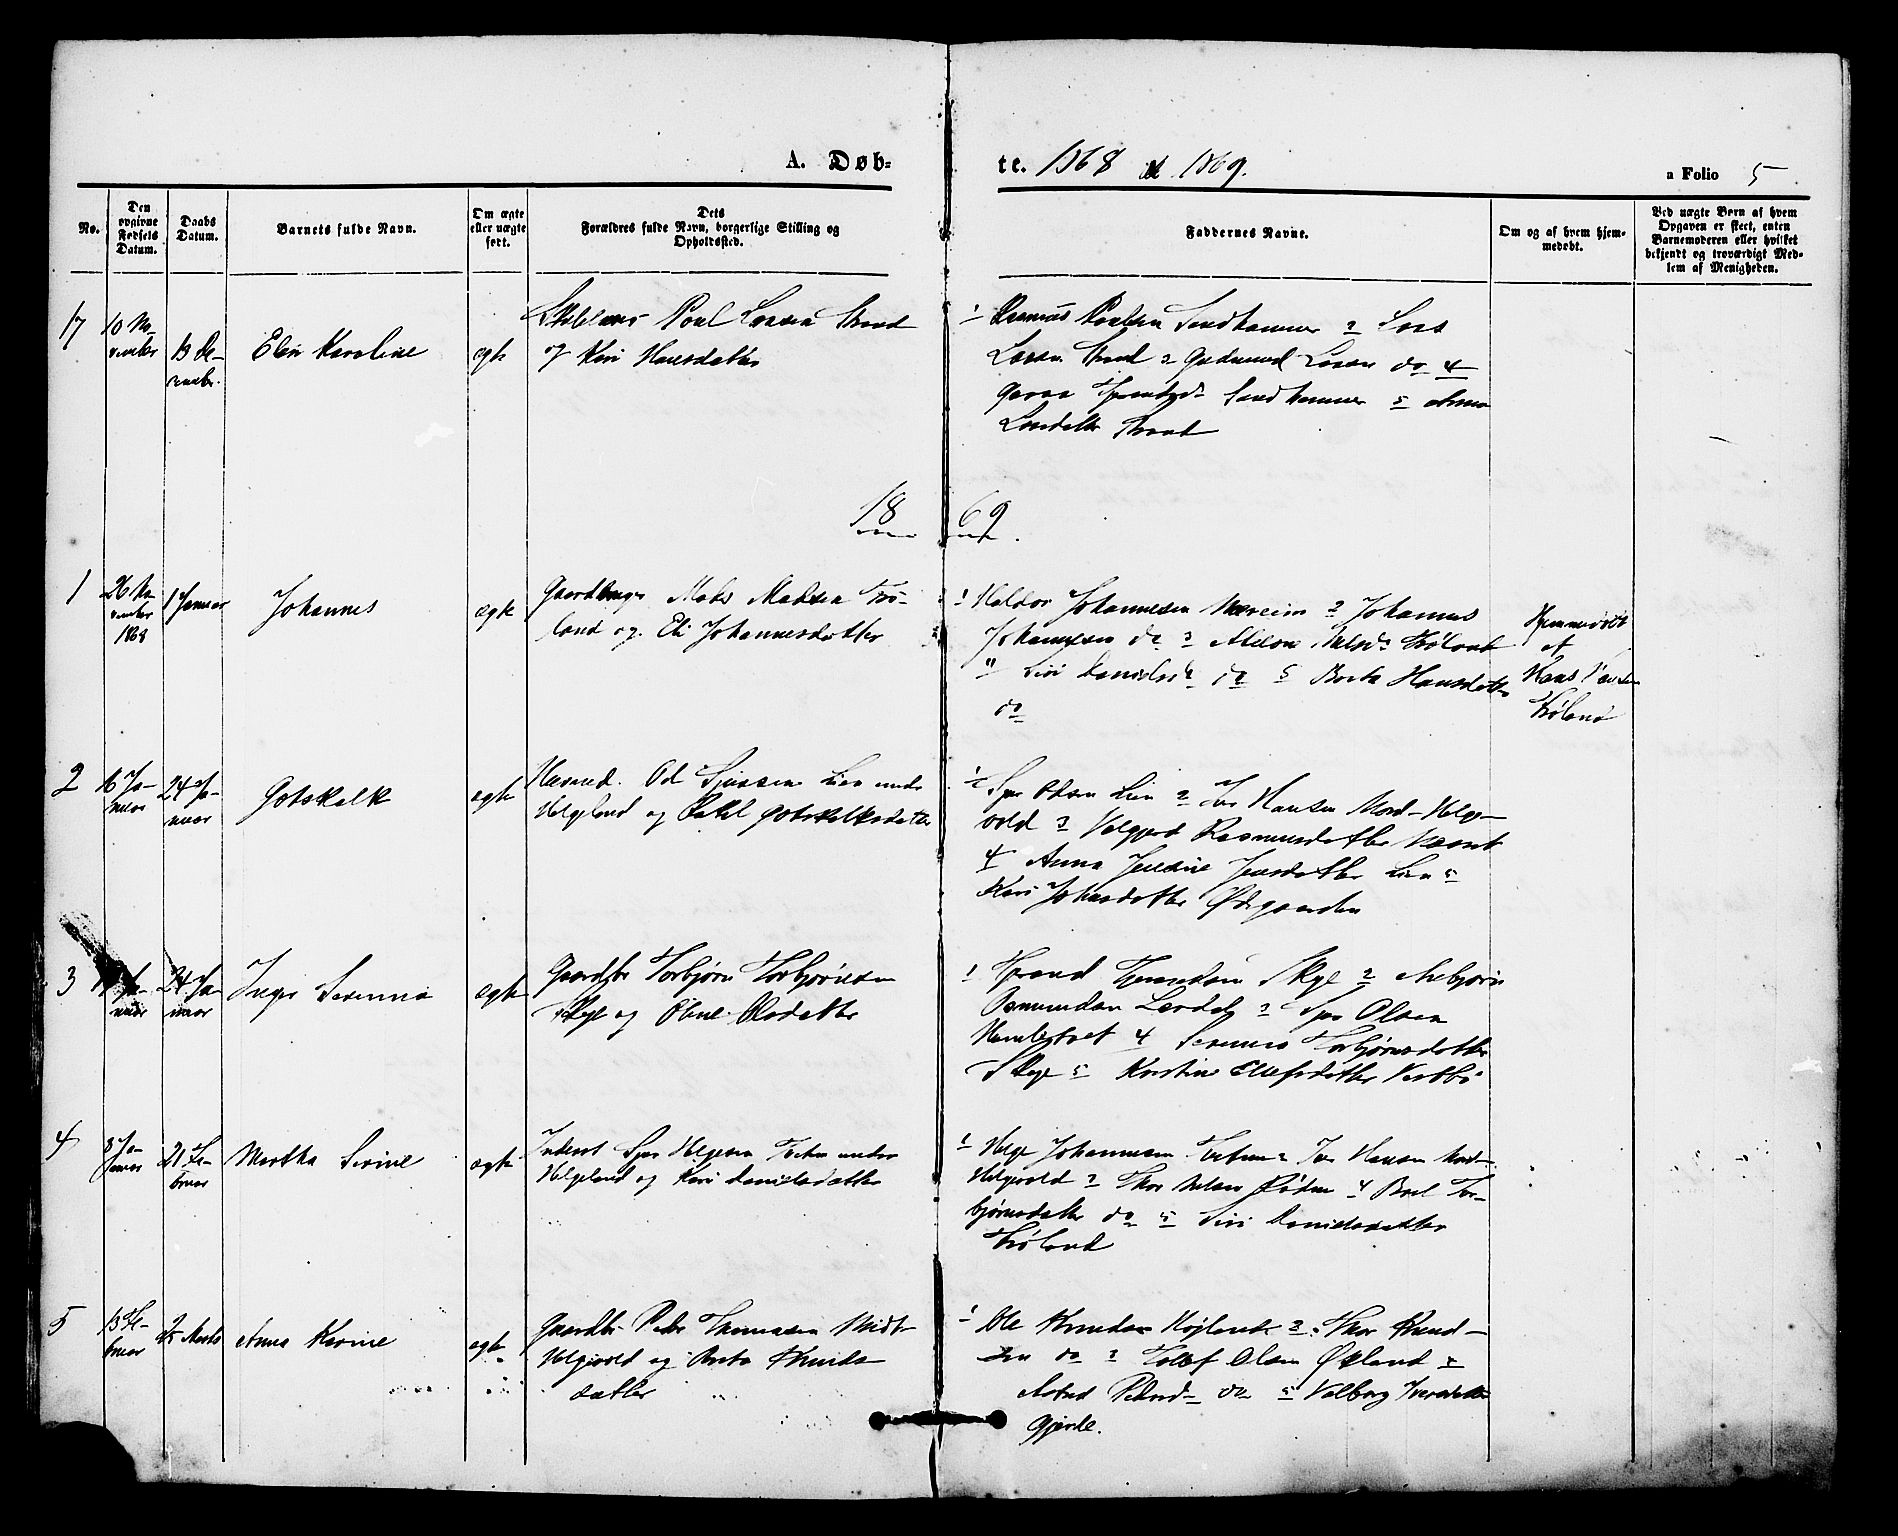 A. Døb-
te. 1868 1869.
a Folio 5
No.
Den
opgivne
Fødsels
Datum.
Daabs
Datum.
Barnets fulde Navn.
Om ægte
eller uægte
født.
Dets
Forældres fulde Navn, borgerlige Stilling og
Opholdssted.
Faddernes Navne.
Om og af hvem hjem-
medøbt.
Ved uægte Børn af hvem
Opgaven er skeet, enten
Barnemoderen eller hvilket
bekjendt og troværdigt Med-
lem af Menigheden.
17
10 No-
vember
13 De-
cembr.
Elen Karoline
ægte
Poul Larsen Strand
og Kari Hansdatter
1 Rasmus Poulsen Sandhammer 2 Lars
Larsen Strand 3 Gudmund Larsen do 4
Sandhammer 5 Anna
Larsdatter Strand
1869
1
26 No-
vember
1868
1 Januar
Johannes
ægte
Gaardbruger Mads Madsen Trø-
land og Eli Johannesdatter
1 Haldor Johannesen 2 Johannes
Johannesen do 3 Trøland
4 Siri Danielsd do 5 Berta Hansdatter
do
Hjemmedøbt
af
Hans
Trøland
2
16 Ja-
nuar
24 Ja-
nuar
Gotskalk
ægte
Husmd. Od Sjursen Lien under
Helgeland og Gotskalksdatter
1 Sjur Odsen Lien 2 Iver Hansen Nord-Helge-
vold 3 Valgjerd Rasmusdatter
4 Anna Jensine Jensdatter Lien 5
Kari Johnsdatter Ødegaarden
3
Ja-
nuar
24 Ja-
nuar
Inger Serenna
ægte
Gaardbr Torbjørn Torbjørnsen
Skye og Oline Olsdatter
1 Skye 2 Asbjørn
Osmundsen Lerdal 3 Sjur Olsen
4 Serenna Torbjørnsdatter
Skye 5 Kirstine Ellefsdatter Vestbø
4
8 Ja-
nuar
21 Fe-
bruar
Martha Serine
ægte
Inderst Sjur Helgesen under
Helgeland og Kari Danielsdatter
1 Helge Johannesen 2 Iver Hansen Nord-
Helgevold 3 Thor Nelsen 4 Boel Tor-
bjørnsdatter do 5 Siri Danielsdatter
Trøland
5
13 Fe-
bruar
2 Marts
Anna Karine
ægte
Gaardbr Peder Thomasen Midt-
Helgevold og Berta Knuds
datter
1 Ole Knudsen 2 Thor Knud-
sen do 3 Tollef Olsen Økland 4
Astrid Pedersd do 5 Valborg Iversdatter
Gjerde.